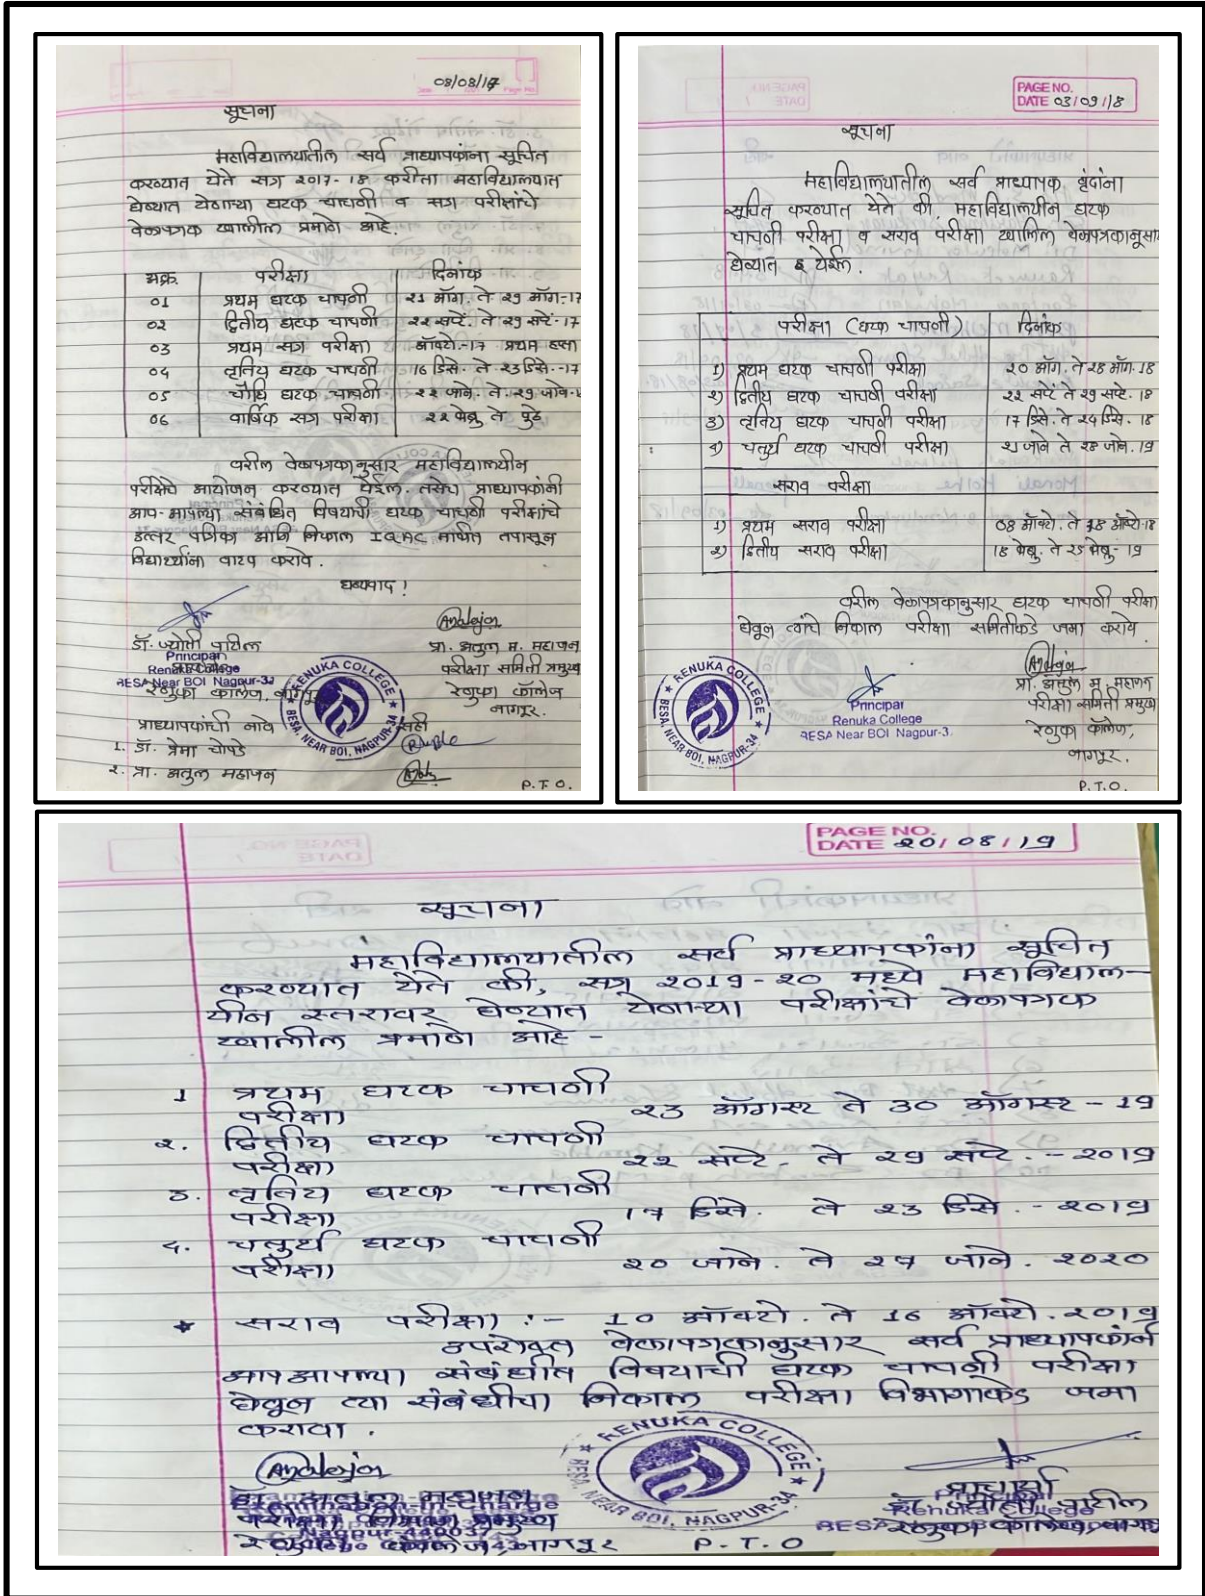 08/08/17
सूचना
महाविद्यालयातील सर्व प्राध्यापकांना सूचित
करण्यात येते सत्र २०१७-१८ करीता महाविद्यालयात
घेण्यात येणाऱ्या घटक चाचणी व सत्र परीक्षांचे
वेळापत्रक खालील प्रमाणे आहे.
अक्र. परीक्षा दिनांक
०१ प्रथम घटक चाचणी २१ ऑग. ते २९ ऑग-17
०२ द्वितीय घटक चाचणी २२ सप्टें. ते २९ सप्टें-17
०३ प्रथम सत्र परीक्षा ऑक्टो.-17 प्रथम हप्ता
०४ तृतिय घटक चाचणी 16 डिसे. ते २3 डिसे.-17
०५ चौथि घटक चाचणी २२ जाने. ते २९ जाने.
०६ वार्षिक सत्र परीक्षा २२ फेब्रु ते पुढे
वरील वेळापत्रकानुसार महाविद्यालयीन
परीक्षेचे आयोजन करण्यात येईल. तसेच प्राध्यापकांनी
आप-आपल्या संबंधित विषयाची घटक चाचणी परीक्षांचे
उत्तर पत्रिका आणि निकाल IQAC मार्फत तपासून
विद्यार्थ्यांना वाटप करावे.
धन्यवाद!
डॉ. ज्योती पाटील प्रा. अतुल म. महाजन
Principal
Renuka College परीक्षा समिती प्रमुख
BESA Near BOI Nagpur-34
रेणुका कॉलेज, नागपूर रेणुका कॉलेज
नागपूर.
RENUKA COLLEGE
BESA, NEAR BOI, NAGPUR-34
प्राध्यापकांची नावे सही
1. डॉ. प्रेमा चोपडे
२. प्रा. अतुल महाजन
P.T.O.
PAGE NO.
DATE 03/09/18
सूचना
महाविद्यालयातील सर्व प्राध्यापक वृंदांना
सूचित करण्यात येते की, महाविद्यालयीन घटक
चाचणी परीक्षा व सराव परीक्षा खालिल वेळापत्रकानुसार
घेण्यात येईल.
परीक्षा (घटक चाचणी) दिनांक
1) प्रथम घटक चाचणी परीक्षा २० ऑग. ते २८ ऑग. 18
२) द्वितीय घटक चाचणी परीक्षा २२ सप्टें ते २९ सप्टे. 18
3) तृतिय घटक चाचणी परीक्षा 17 डिसे. ते २४ डिसे. 18
४) चतुर्थ घटक चाचणी परीक्षा २१ जाने ते २८ जाने. 19
सराव परीक्षा
1) प्रथम सराव परीक्षा 08 ऑक्टो. ते 18 ऑक्टो-18
२) द्वितीय सराव परीक्षा 18 फेब्रु. ते २5 फेब्रु-19
वरील वेळापत्रकानुसार घटक चाचणी परीक्षा
घेवून त्यांचे निकाल परीक्षा समितीकडे जमा करावे
प्रा. अतुल म. महाजन
परीक्षा समिती प्रमुख
रेणुका कॉलेज,
नागपूर.
Principal
Renuka College
BESA Near BOI Nagpur-3
RENUKA COLLEGE
BESA, NEAR BOI, NAGPUR-34
P.T.O.
PAGE NO.
DATE २०/08/19
सूचना
महाविद्यालयातील सर्व प्राध्यापकांना सूचित
करण्यात येते की, सत्र २०19-२० मध्ये महाविद्याल-
यीन स्तरावर घेण्यात येणाऱ्या परीक्षांचे वेळापत्रक
खालील प्रमाणे आहे -
1 प्रथम घटक चाचणी
परीक्षा २3 ऑगस्ट ते 30 ऑगस्ट - 19
२. द्वितीय घटक चाचणी
परीक्षा २२ सप्टे. ते २9 सप्टे. - २०19
3. तृतिय घटक चाचणी
परीक्षा 17 डिसे. ते २3 डिसे. - २०19
४. चतुर्थ घटक चाचणी
परीक्षा २० जाने. ते २७ जाने. २०२०
* सराव परीक्षा :- 10 ऑक्टो. ते 16 ऑक्टो. २०19
उपरोक्त वेळापत्रकानुसार सर्व प्राध्यापकांनी
आपआपल्या संबंधीत विषयाची घटक चाचणी परीक्षा
घेवून त्या संबंधीचा निकाल परीक्षा विभागाकडे जमा
करावा.
RENUKA COLLEGE
BESA, NEAR BOI, NAGPUR-34
प्रा. अतुल महाजन प्राचार्या
डॉ. ज्योती पाटील
Renuka College
P.T.O